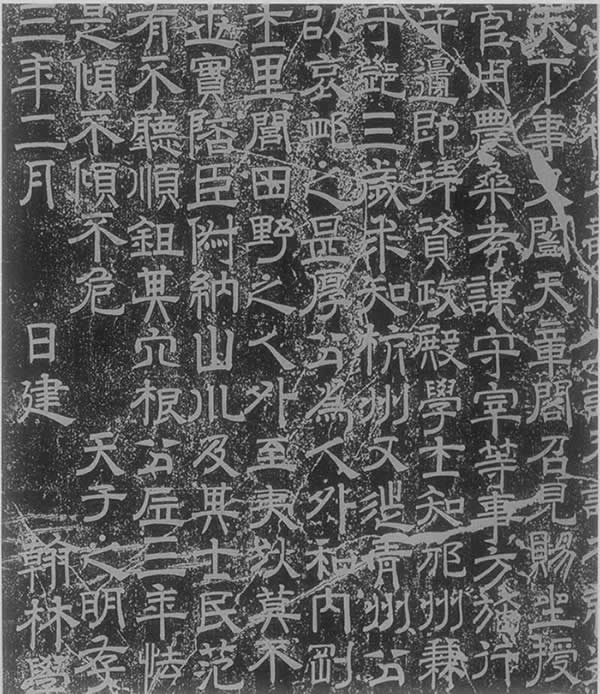 天下事又闓天章閣召見賜坐授
官用農桑考課守宰等事方施行
守邊即拜資政殿學士知邠州兼
守鄧三歲求知杭州又徙青州公
以哀卹之甚厚公為人外和內剛
士里閭田野之人外至夷狄莫不
世實陪臣附納山川及其士民范
有不聽順鉏其穴根公居三年怯
是傾不傾不危 天子之明存
三年二月 日建 翰林學